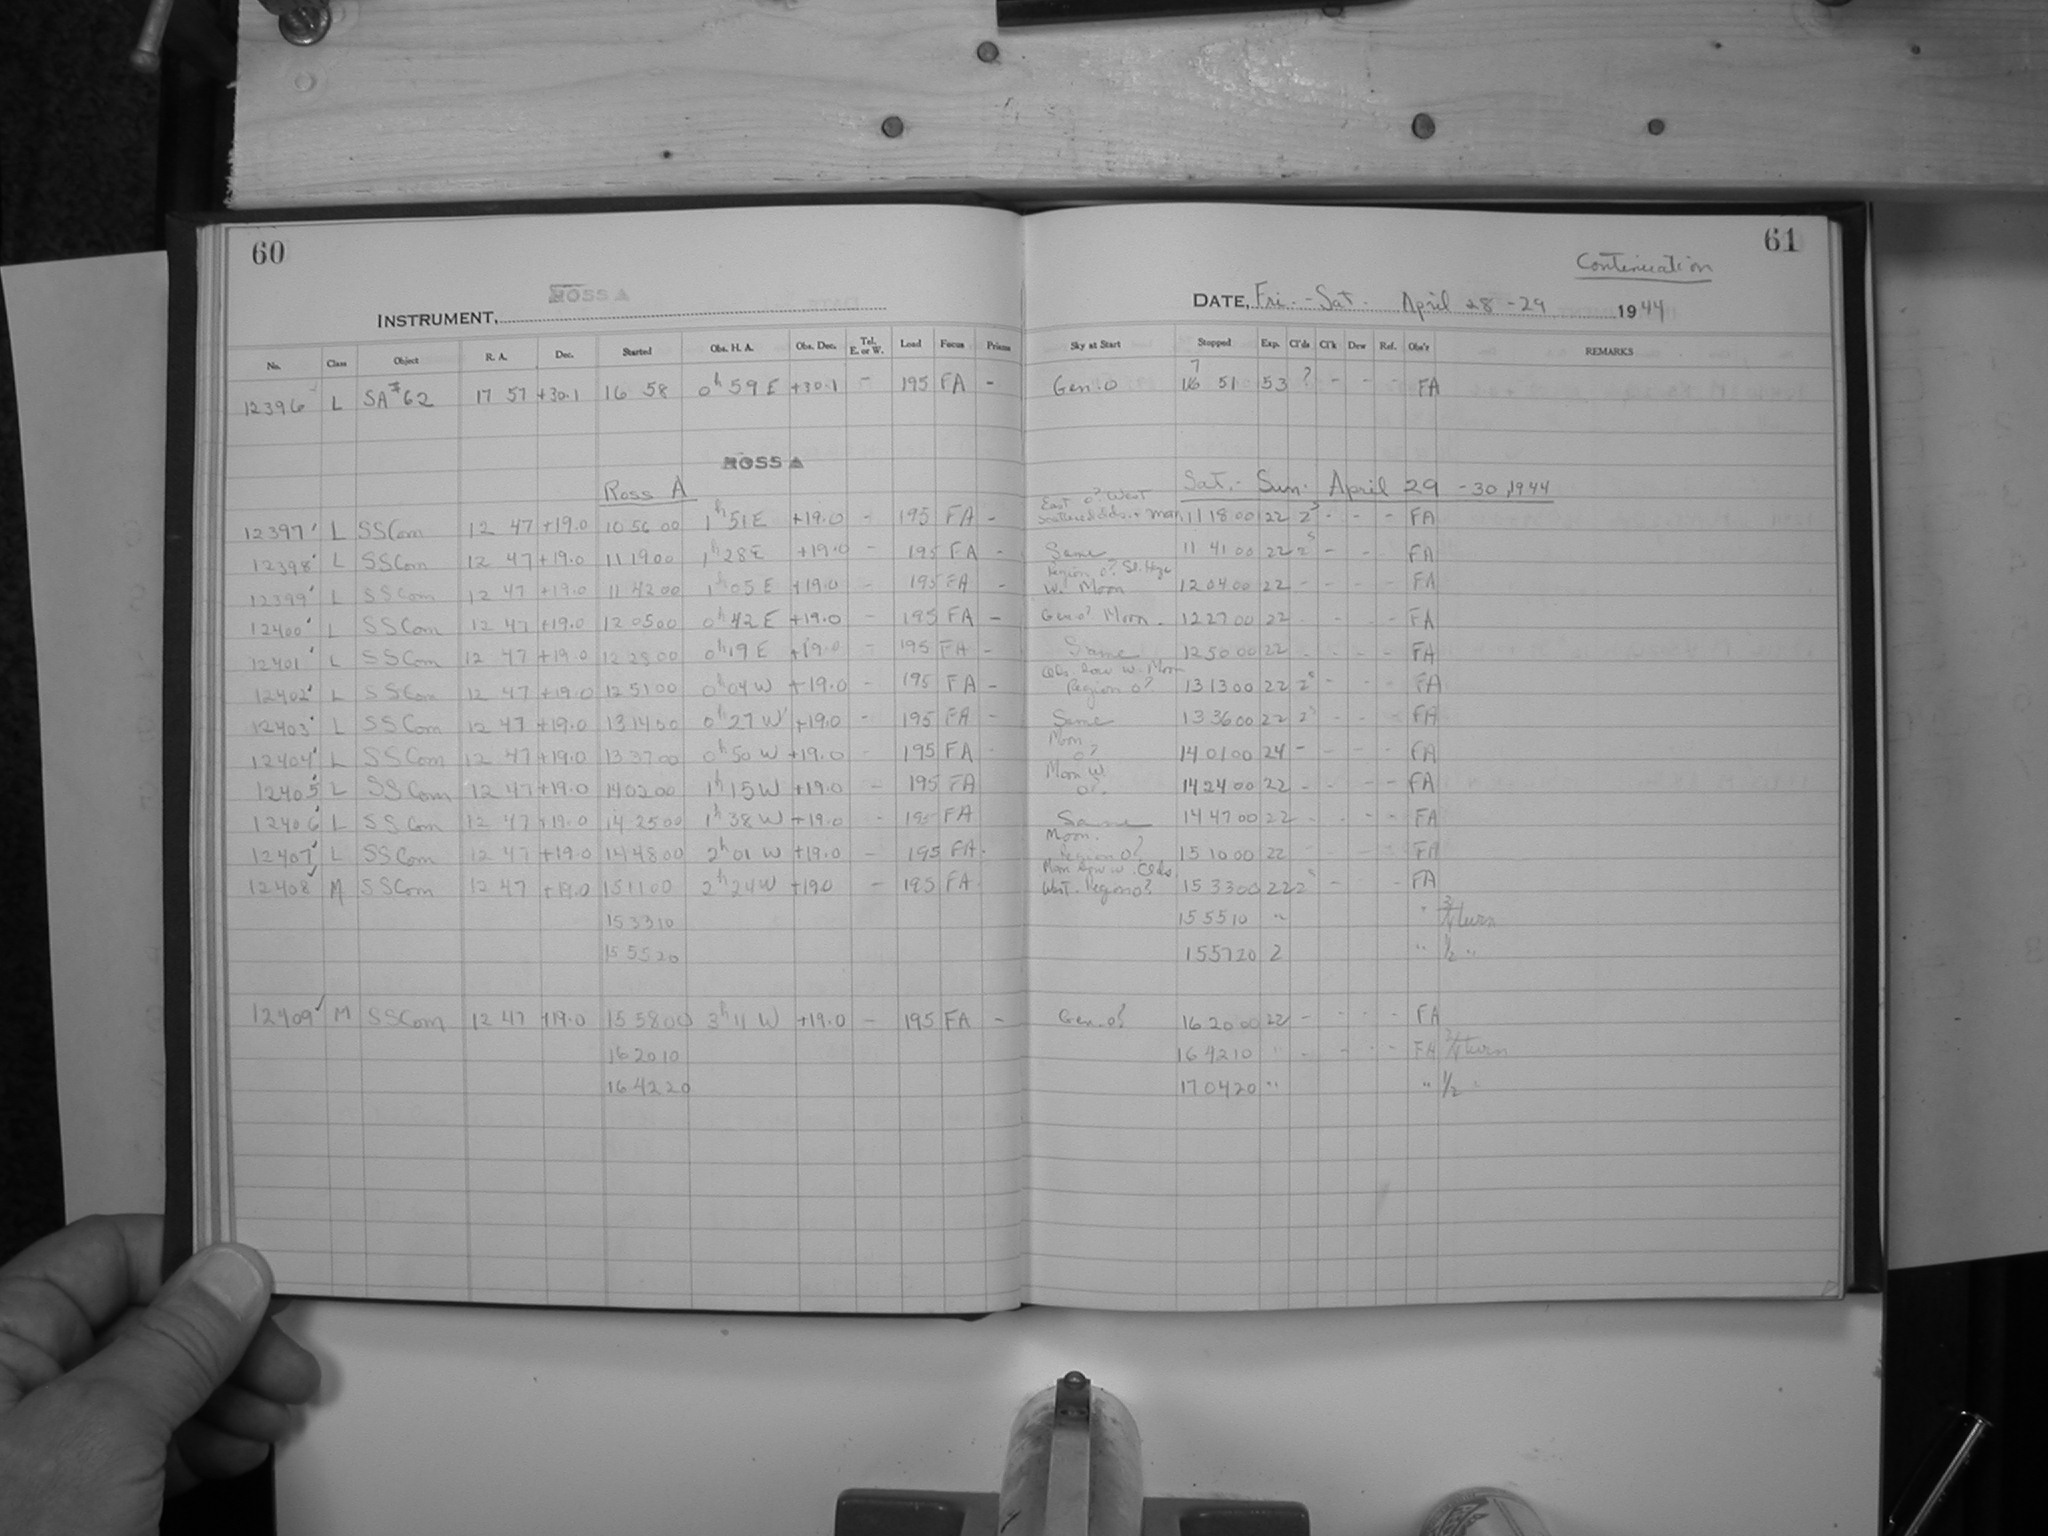 60
ROSS A
INSTRUMENT,
No. Class Object R. A. Dec. Started Obs. H. A. Obs. Dec. Tel. E. or W. Load Focus Prisms
12396 L SA#62 17 57 +30.1 16 58 0h 59 E +30.1 - 195 FA -
ROSS A
Ross A
12397 L SSCom 12 47 +19.0 10 56 00 1h 51 E +19.0 - 195 FA -
12398 L SSCom 12 47 +19.0 11 19 00 1h 28 E +19.0 - 195 FA -
12399 L SSCom 12 47 +19.0 11 42 00 1h 05 E +19.0 - 195 FA -
12400 L SSCom 12 47 +19.0 12 05 00 0h 42 E +19.0 - 195 FA -
12401 L SSCom 12 47 +19.0 12 28 00 0h 19 E +19.0 - 195 FA -
12402 L SSCom 12 47 +19.0 12 51 00 0h 04 W +19.0 - 195 FA -
12403 L SSCom 12 47 +19.0 13 14 00 0h 27 W +19.0 - 195 FA -
12404 L SSCom 12 47 +19.0 13 37 00 0h 50 W +19.0 195 FA
12405 L SSCom 12 47 +19.0 14 02 00 1h 15 W +19.0 - 195 FA
12406 L SSCom 12 47 +19.0 14 25 00 1h 38 W +19.0 - 195 FA
12407 L SSCom 12 47 +19.0 14 48 00 2h 01 W +19.0 - 195 FA
12408 M SSCom 12 47 +19.0 15 11 00 2h 24 W +19.0 - 195 FA
15 33 10
15 55 20
12409 M SSCom 12 47 +19.0 15 58 00 3h 11 W +19.0 - 195 FA -
16 20 10
16 42 20
61
Continuation
DATE, Fri. - Sat. April 28-29 1944
Sky at Start Stopped Exp. Cl'ds Cl'k Dew Ref. Obs'r REMARKS
7
Gen. 0 16 51 53 ? - - FA
Sat. - Sun. April 29 - 30, 1944
East 0? West
Scattered clds. + 11 18 00 22 - - - FA
Same 11 41 00 22 - - - FA
Region 0? Sl. Haze
W. Moon 12 04 00 22 - - - - FA
Gen 0? Moon. 12 27 00 22 - - - - FA
Same 12 50 00 22 - - - - FA
Clds. low w. Moon
Region 0? 13 13 00 22 - - - FA
Same 13 36 00 22 - - - FA
Moon
0? 14 01 00 24 - - - - FA
Moon W.
0? 14 24 00 22 - - - - FA
Same 14 47 00 22 - - - - FA
Moon.
Region 0? 15 10 00 22 - - - - FA
Moon low w. Clds.
West. Region 0? 15 33 00 22 - - - FA
15 55 10 " " 3/4 turn
15 57 20 2 " 1/2 "
Gen. 0? 16 20 00 22 - - - - FA
16 42 10 " - - - - FA turn
17 04 20 " " 1/2 "